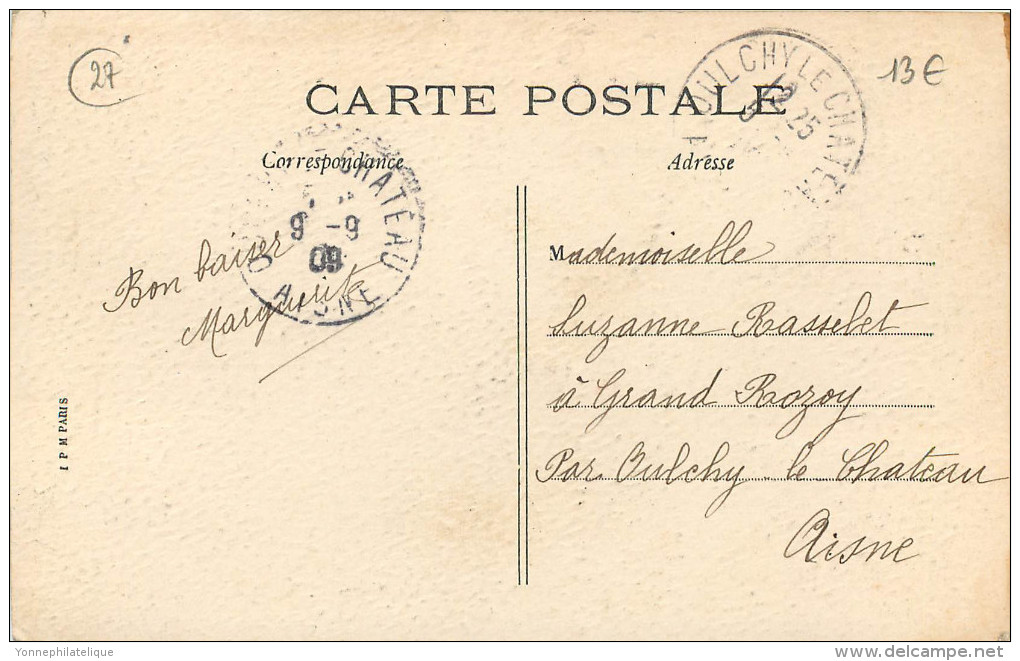 27
13€
CARTE POSTALE
Correspondance
Adresse
OULCHY LE CHATEAU
25
CHATEAU
9-9
09
AISNE
Bon baiser
Marguerite
Mademoiselle
Suzanne Rasselet
à Grand Rozoy
Par Oulchy le Chateau
Aisne
I P M PARIS
Yonnephilatelique
www.delcampe.net